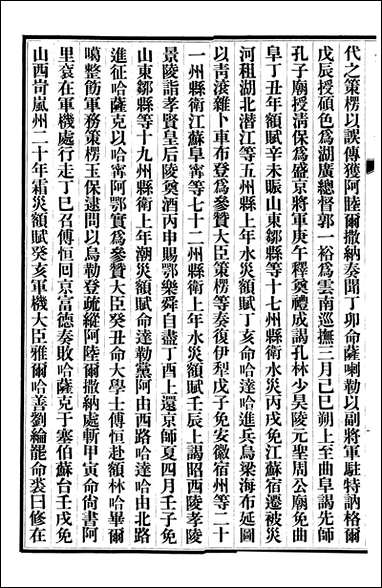 代之策楞以誤傳獲阿睦爾撒納奏聞丁卯命薩喇勒以副將軍駐特訥格爾
戊辰授碩色爲湖廣總督郭一裕爲雲南巡撫三月己巳朔上至曲阜謁先師
孔子廟授清保爲盛京將軍庚午釋奠禮成謁孔林少昊陵元聖周公廟免曲
阜丁丑年額賦辛未賑山東鄒縣等十七州縣衛水災丙戌免江蘇宿遷被災
河租湖北潛江等五州縣上年水災額賦丁亥命哈達哈進兵烏梁海布延圖
以靑滾雜卜車布登爲參贊大臣策楞等奏復伊犁戊子免安徽宿州等二十
一州縣衛江蘇阜寧等七十二州縣衛上年水災額賦壬辰上謁昭西陵孝陵
景陵詣孝賢皇后陵奠酒丙申賜鄂樂舜自盡丁酉上還京師夏四月壬子免
山東鄒縣等十九州縣衛上年潮災額賦命達勒黨阿由西路哈達哈由北路
進征哈薩克以哈寧阿鄂實爲參贊大臣癸丑命大學士傅恒赴額林哈畢爾
噶整飭軍務策楞玉保逮問以烏勒登疏縱阿睦爾撒納處斬甲寅命尙書阿
里袞在軍機處行走丁巳召傅恒回京富德奏敗哈薩克于塞伯蘇台壬戌免
山西岢嵐州二十年霜災額賦癸亥軍機大臣雅爾哈善劉綸罷命裘曰修在